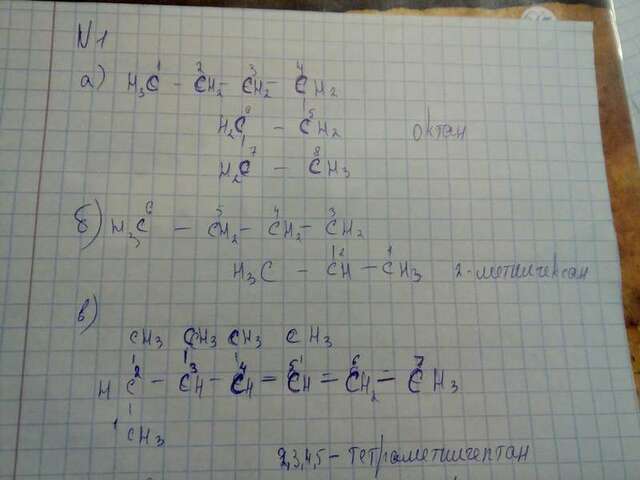 N1
а) H₃C¹ - ²CH₂ - ³CH₂ - ⁴CH₂
H₂C⁶ - ⁵CH₂ октан
H₂C⁷ - ⁸CH₃
б) H₃C⁶ - ⁵CH₂ - ⁴CH₂ - ³CH₂
H₃C - ²CH - ¹CH₃ 2-метилгексан
в)
CH₃ CH₃ CH₃ CH₃
HC² - ³CH - ⁴CH = ⁵CH = ⁶CH₂ = ⁷CH₃
¹CH₃
2,3,4,5 - тетраметилгептан